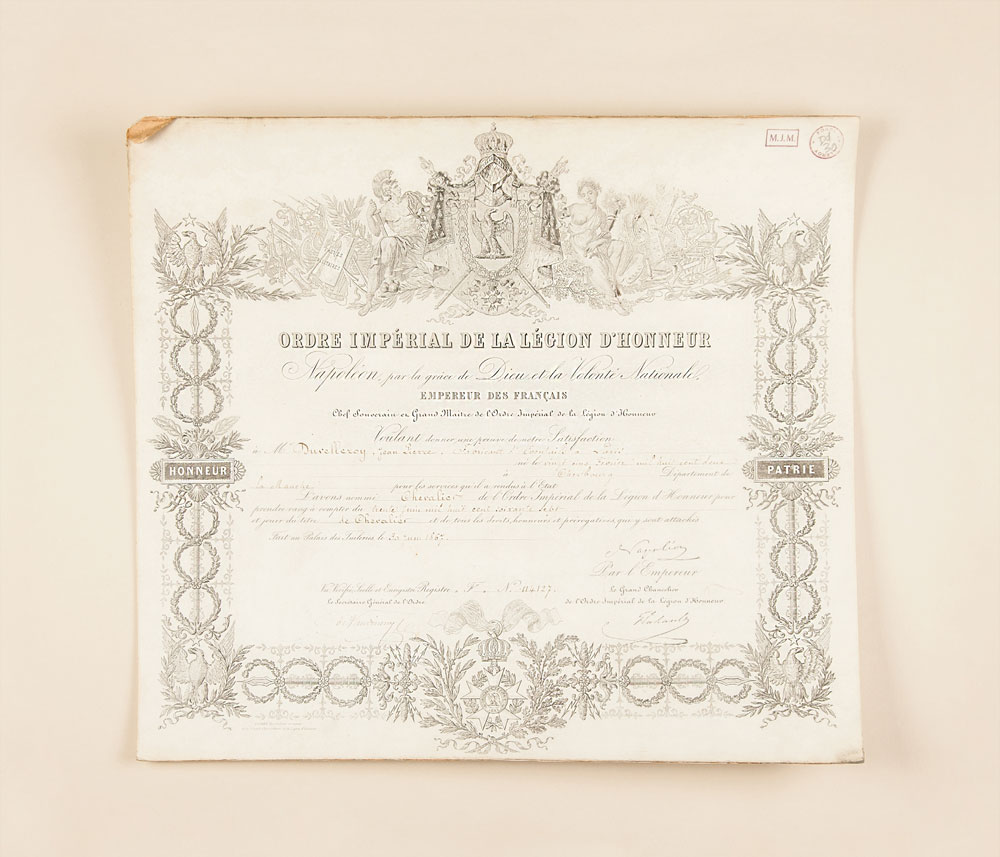 M.J.M.
ORDRE IMPÉRIAL DE LA LÉGION D'HONNEUR
Napoléon, par la grâce de Dieu et la Volonté Nationale,
EMPEREUR DES FRANÇAIS
Chef Souverain et Grand Maître de l'Ordre Impérial de la Légion d'Honneur
Voulant donner une preuve de notre Satisfaction
à M. Duvelleroy, Jean Pierre, à Paris
né le vingt cinq mil huit cent deux
à Cherbourg Département de
La Manche pour les services qu'il a rendus à l'Etat
L'avons nommé Chevalier de l'Ordre Impérial de la Légion d'Honneur pour
prendre rang à compter du trente juin mil huit cent soixante sept
et jouir du titre de Chevalier et de tous les droits, honneurs et prérogatives qui y sont attachés
Fait au Palais des Tuileries le 30 juin 1867.
HONNEUR
PATRIE
Napoléon
Par l'Empereur
Vu, Vérifié, Scellé et Enregistré Registre F. N° 114127.
le Secrétaire Général de l'Ordre
le Grand Chancelier
de l'Ordre Impérial de la Légion d'Honneur